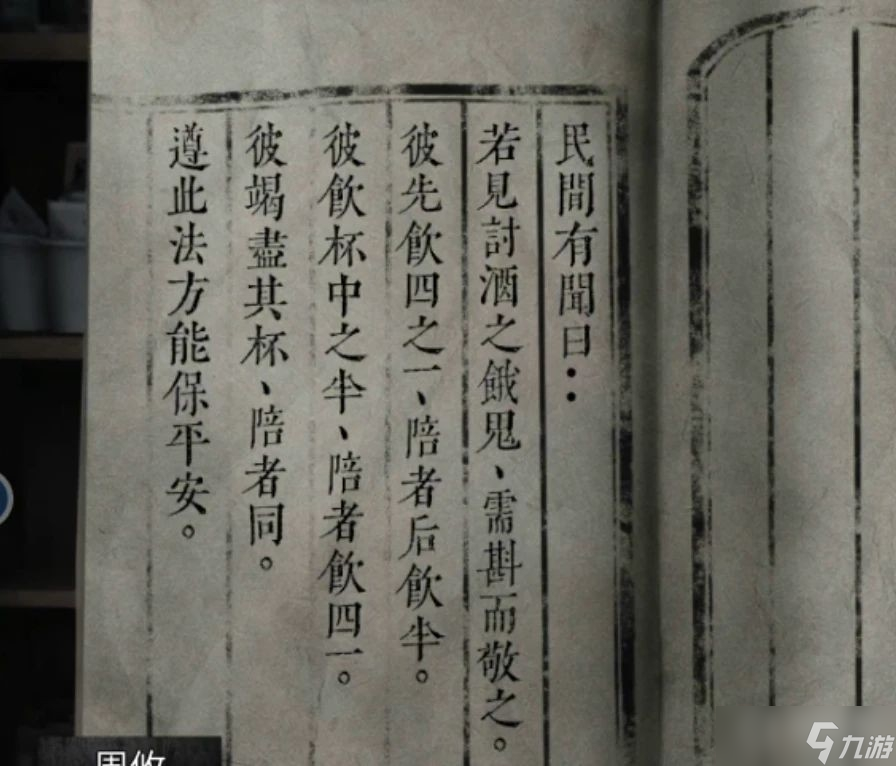 民間有聞曰：
若見討酒之餓鬼、需斟而敬之。
彼先飲四之一、陪者后飲半。
彼飲杯中之半、陪者飲四一。
彼竭盡其杯、陪者同。
遵此法方能保平安。
九游